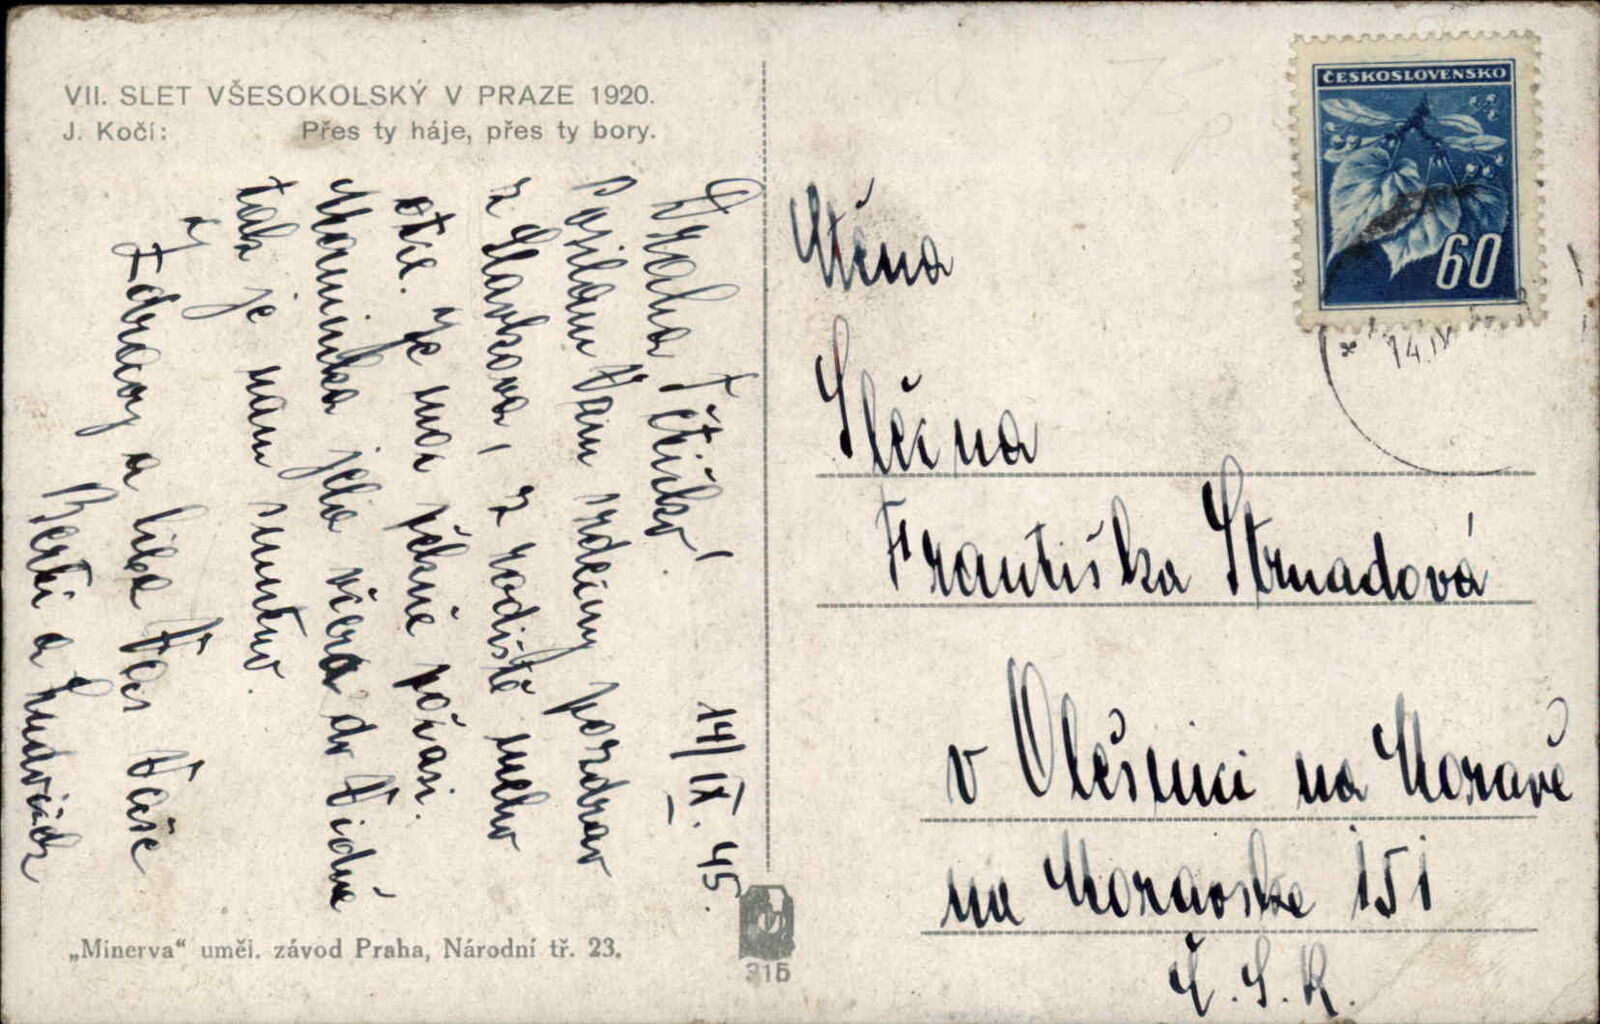 VII. SLET VŠESOKOLSKÝ V PRAZE 1920.
J. Kočí: Přes ty háje, přes ty bory.
14/IX. 45.
Drahá Tetičko!
Posílám Vám srdečný pozdrav
z Slavkova, z rodiště meho
otce. Je moc pěkné počasí.
Maminka jela včera do Vídně
tak je nám smutno.
Zdraví a líbá Vás Vaše
Berti a Ludvíček
„Minerva“ uměl. závod Praha, Národní tř. 23.
315
ČESKOSLOVENSKO
60
14.IX
Ctěná
Slečna
Františka Strnadová
v Olešnici na Moravě
na Moravské 151
Č.S.R.